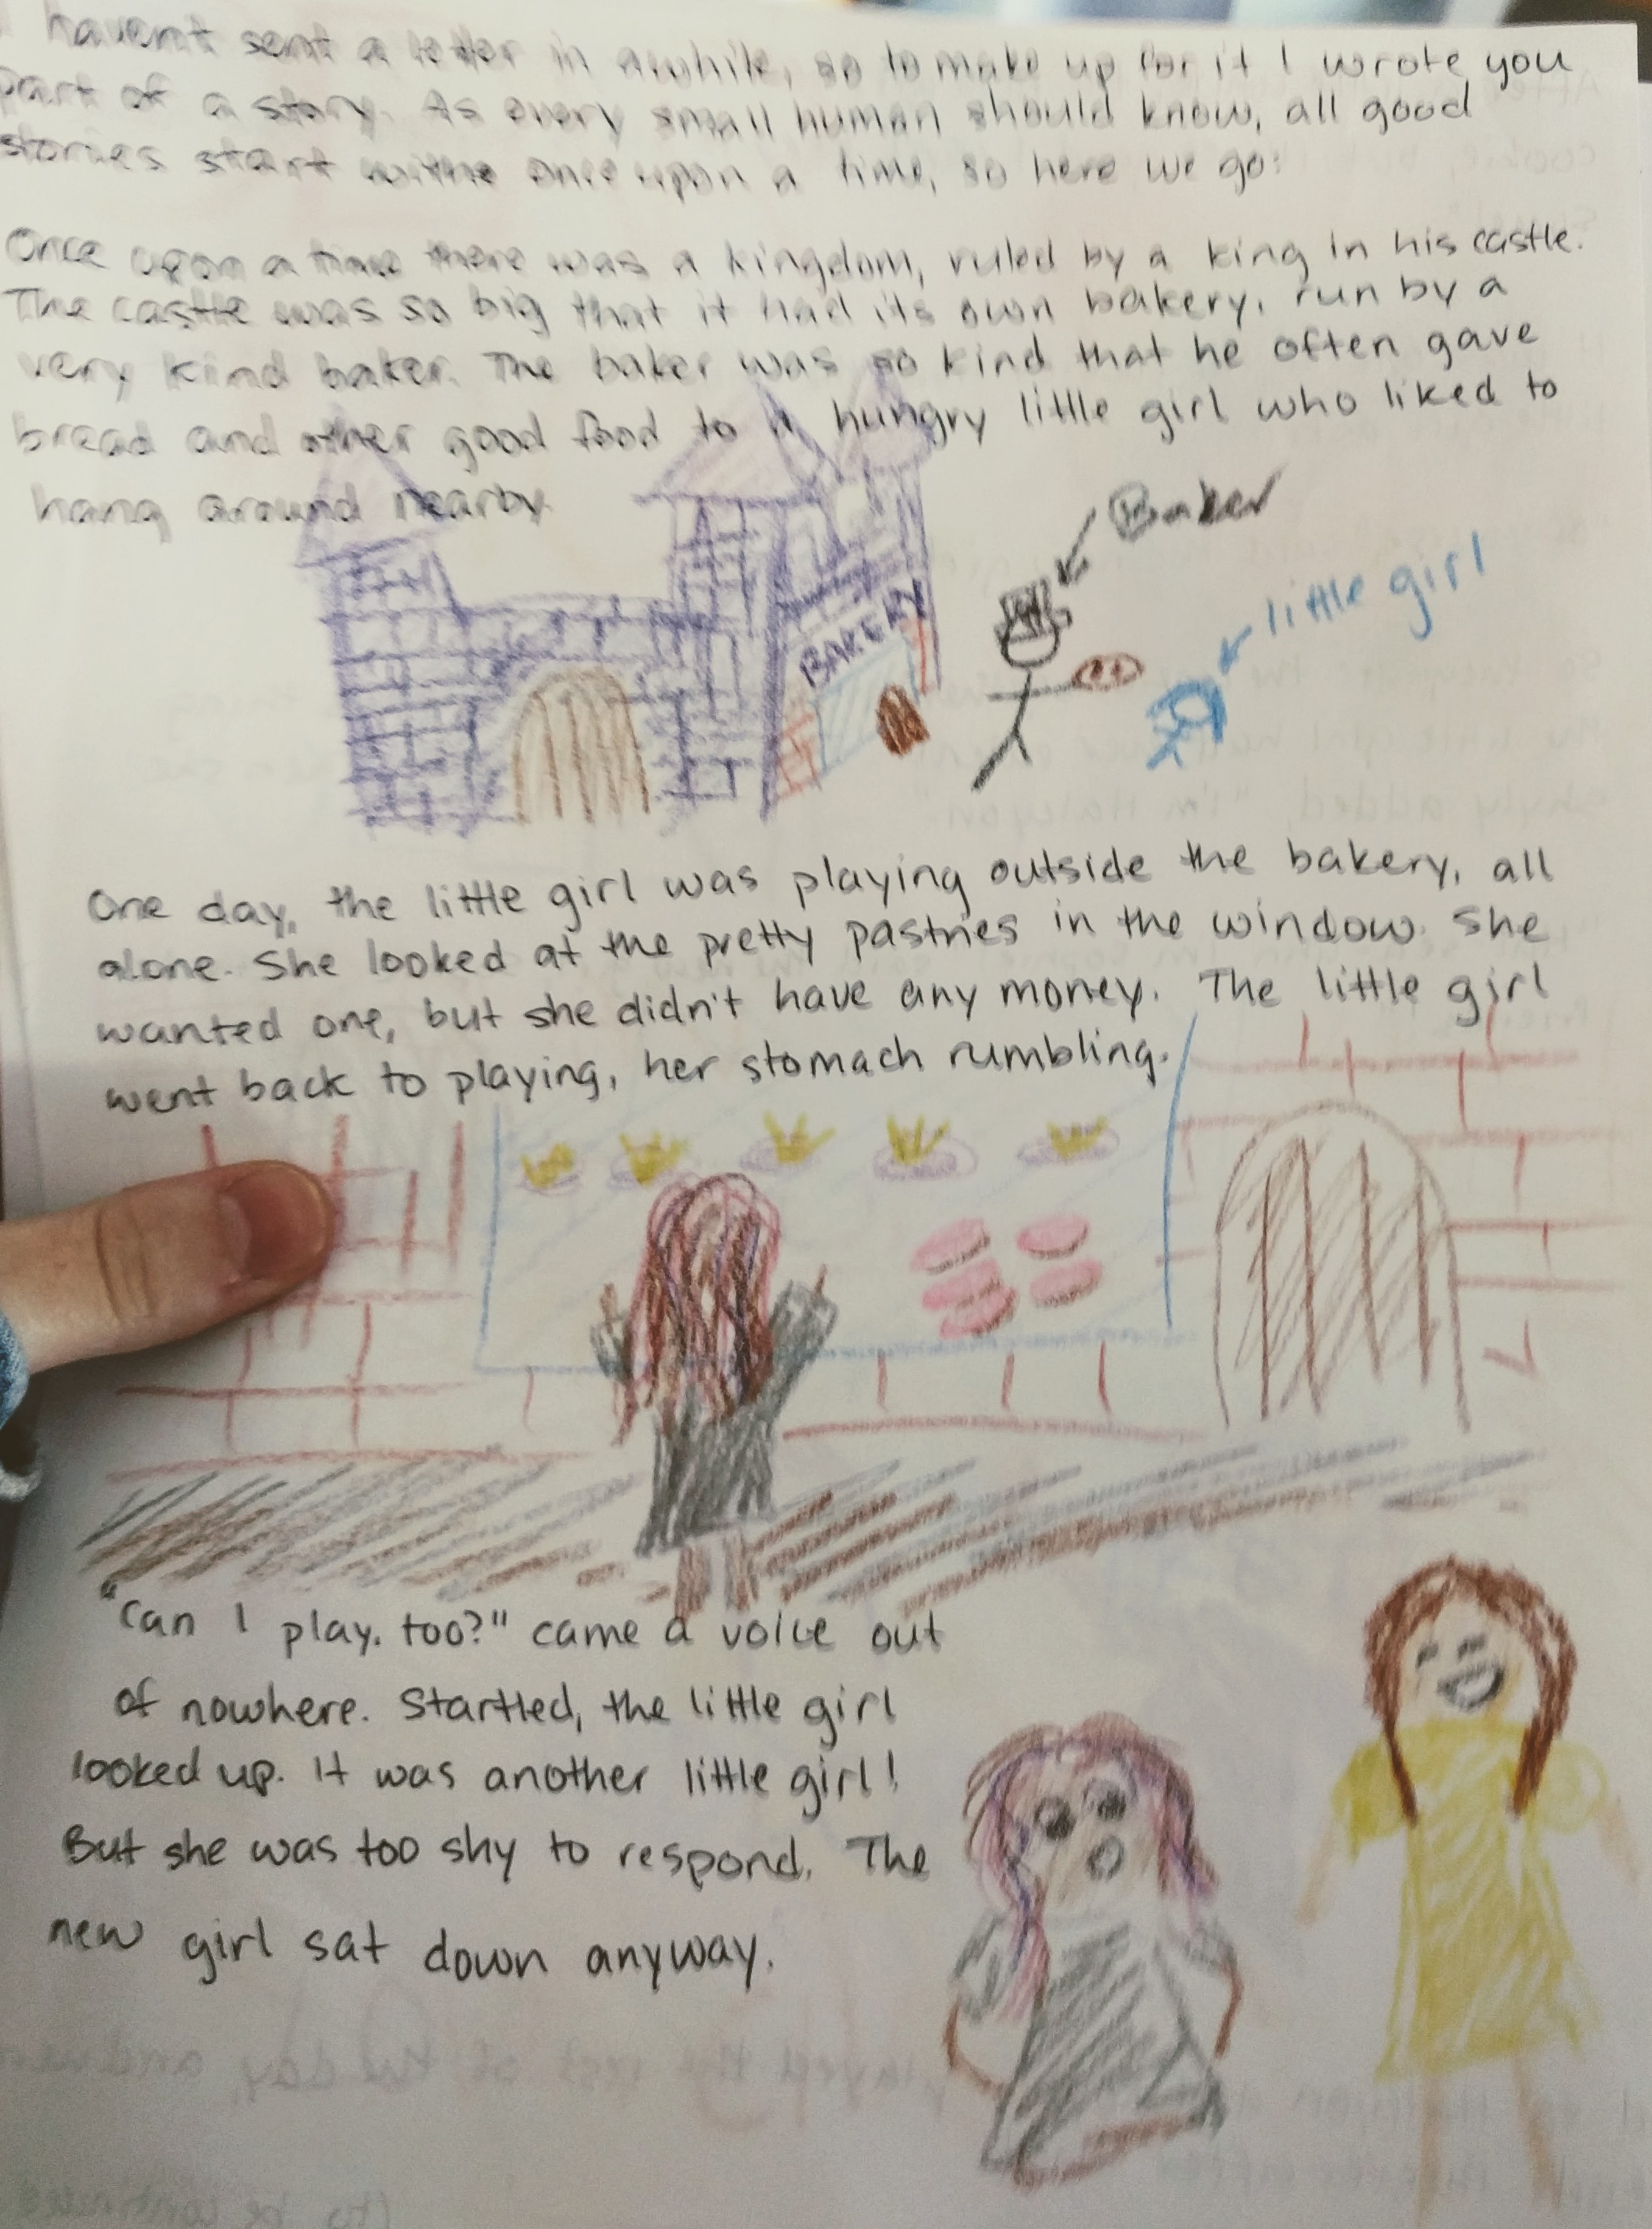 I haven't sent a letter in awhile, so to make up for it I wrote you
part of a story. As every small human should know, all good
stories start withe once upon a time, so here we go:
Once upon a time there was a kingdom, ruled by a king in his castle.
The castle was so big that it had its own bakery, run by a
very kind baker. The baker was so kind that he often gave
bread and other good food to a hungry little girl who liked to
hang around nearby.
Baker
little girl
BAKERY
One day, the little girl was playing outside the bakery, all
alone. She looked at the pretty pastries in the window. She
wanted one, but she didn't have any money. The little girl
went back to playing, her stomach rumbling.
"Can I play, too?" came a voice out
of nowhere. Startled, the little girl
looked up. It was another little girl!
But she was too shy to respond. The
new girl sat down anyway.